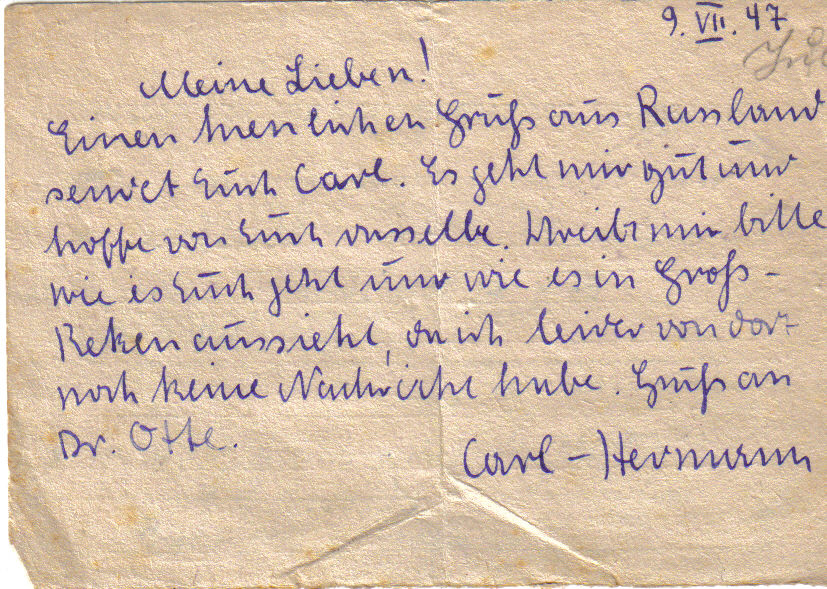 9. VII. 47
Meine Lieben!
Einen herzlichen Gruß aus Russland
sendet Euch Carl. Es geht mir gut und
hoffe von Euch dasselbe. Schreibt mir bitte
wie es Euch geht und wie es in Groß-
Reken aussieht, da ich leider von dort
noch keine Nachricht habe. Gruß an
Dr. Otte.
Carl-Hermann